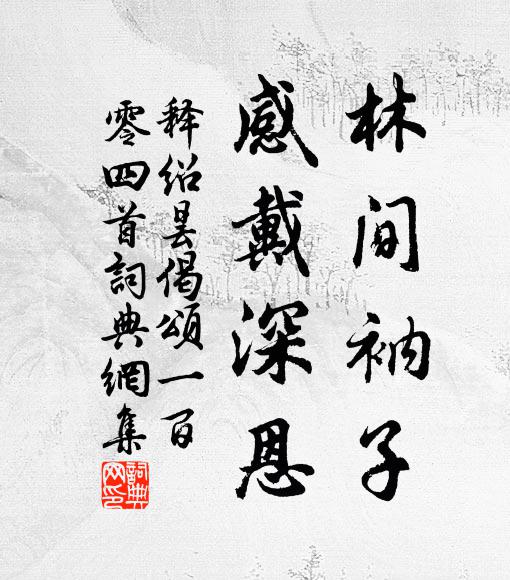 林间衲子
感戴深恩
释绍昙偈颂一百
零四首詞典網集
詞典网印